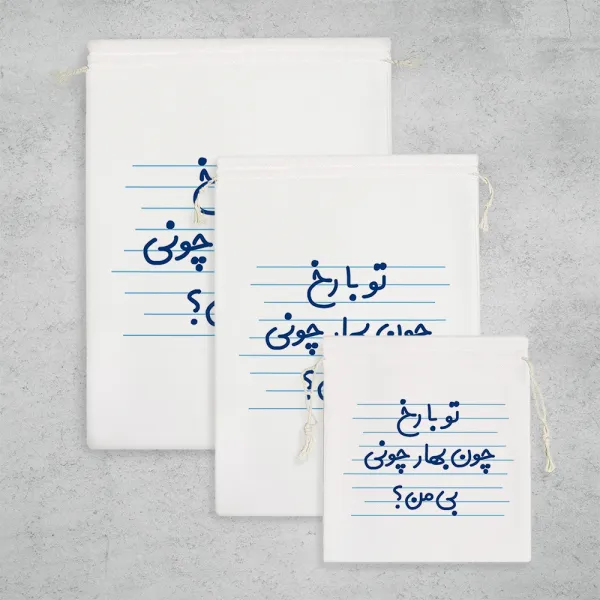 خ
چونی
ن؟
تو با رخ
چون بهار چونی
؟
تو با رخ
چون بهار چونی
بی من؟